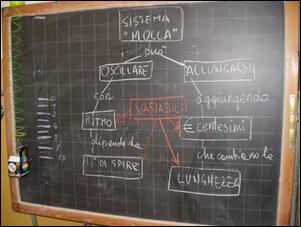 SISTEMA
"MOLLA"
può
OSCILLARE
ALLUNGARSI
con
aggiungendo
VARIABILI
RITMO
€ centesimi
dipende da
che cambiano la
N° DI SPIRE
LUNGHEZZA